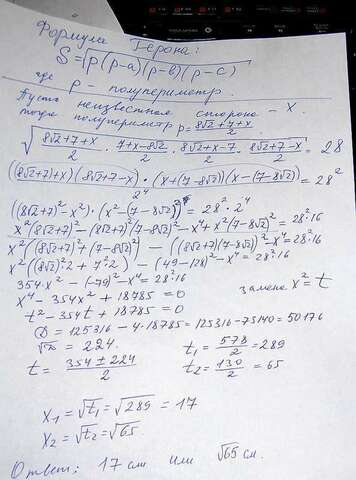 Формула Герона:
S = √(p(p-a)(p-b)(p-c)
где p - полупериметр.
Пусть неизвестная сторона - x.
тогда полупериметр p = (8√2+7+x)/2
√((8√2+7+x)/2 · (7+x-8√2)/2 · (8√2+x-7)/2 · (8√2+7-x)/2) = 28
((8√2+7)+x)(8√2+7-x)·(x+(7-8√2))(x-(7-8√2))/2⁴ = 28²
((8√2+7)²-x²)·(x²-(7-8√2)²) = 28²·2⁴
x²(8√2+7)²-(8√2+7)²(7-8√2)²-x⁴+x²(7-8√2)² = 28²·16
x²((8√2+7)²+(7-8√2)²) - ((8√2+7)(7-8√2))²-x⁴ = 28²·16
x²((8√2)²·2+7²·2) - (49-128)²-x⁴ = 28²·16
354x² - (-79)²-x⁴ = 28²·16
x⁴ - 354x² + 18785 = 0 замена x² = t
t² - 354t + 18785 = 0
D = 125316 - 4·18785 = 125316-75140 = 50176
√D = 224.
t = (354 ± 224)/2 t₁ = 578/2 = 289
t₂ = 130/2 = 65
x₁ = √t₁ = √289 = 17
x₂ = √t₂ = √65.
Ответ: 17 см или √65 см.